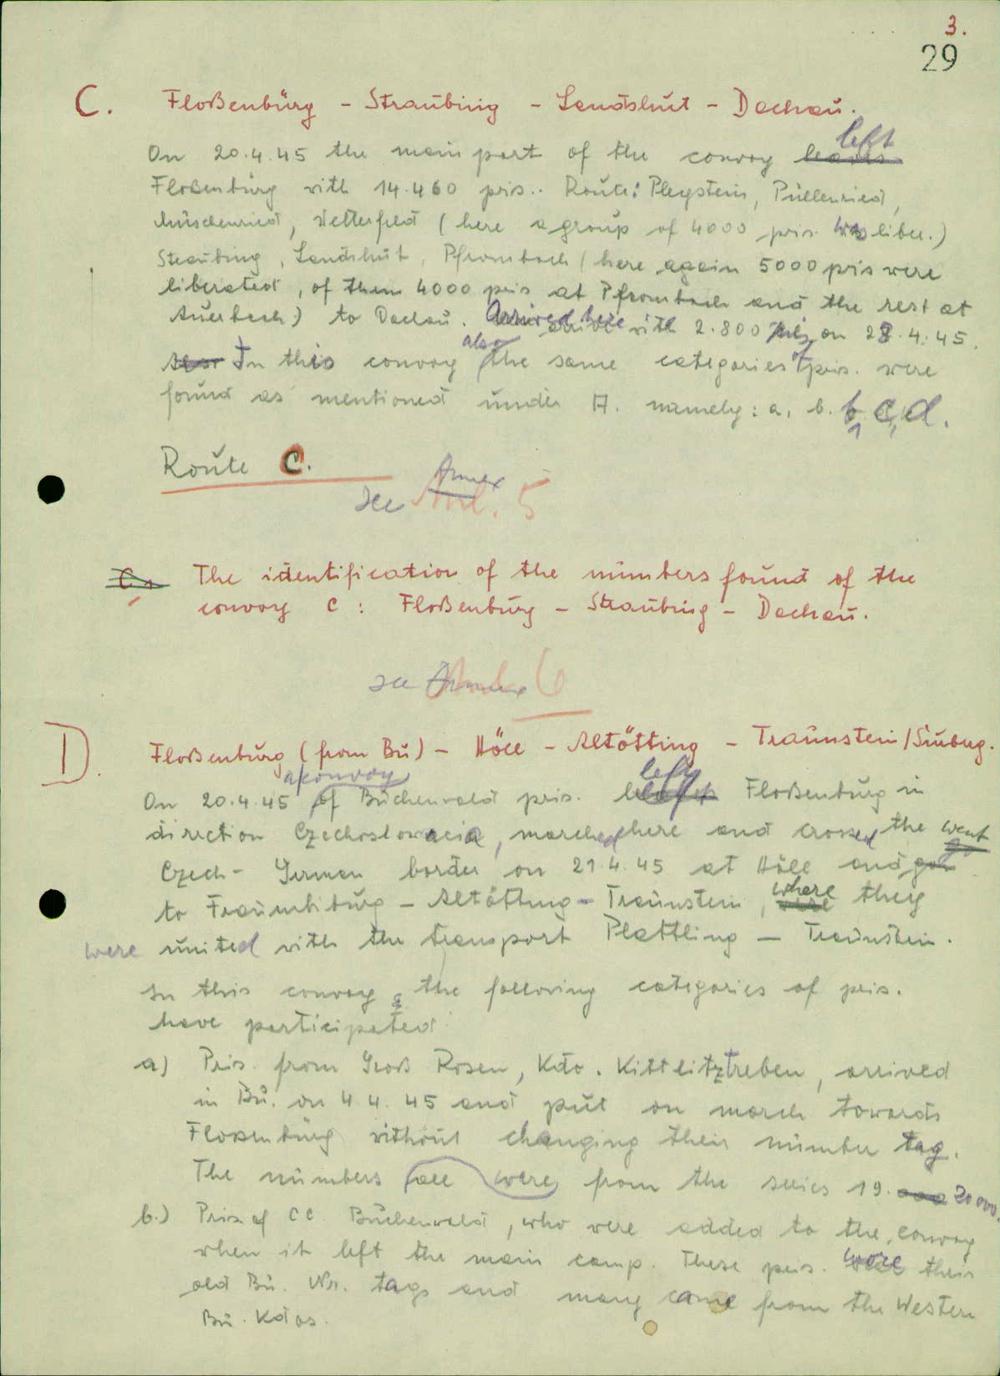 3.
29
C. Floßenbürg - Straubing - Landshut - Dachau.
On 20.4.45 the main part of the convoy left
Floßenbürg with 14.460 pris.. Route: Pleystein, Püllenried,
Müschenried, Wetterfeld (here a group of 4000 pris. was liber.)
Straubing, Landshut, Pfrombach (here again 5000 pris were
liberated, of them 4000 pris at Pfrombach and the rest at
Auerbach) to Dachau. Arrived here with 2.800 pris on 28.4.45.
also
In this convoy the same categories of pris. were
found as mentioned under A. namely: a, b. b, c, d.
Route C.
see Annex 5
C. The identification of the numbers found of the
convoy C: Floßenburg - Straubing - Dachau.
see Annex 6
D. Floßenburg (from Bu) - Höll - Altötting - Traunstein/Surbug.
a convoy left
On 20.4.45 of Buchenwald pris. Floßenburg in
direction Czechoslovacia, marched here and crossed the went
Czech-German border on 21.4.45 at Höll and
to - Altötting - Traunstein, where they
were united with the transport Plattling - Traunstein.
In this convoy the following categories of pris.
have participated
a) Pris. from Groß Rosen, Kdo. Kittlitztreben, arrived
in Bu. on 4.4.45 and put on march towards
Flossenbürg without changing their number tag.
The numbers all were from the series 19. 20000.
b.) Pris of CC Buchenwald, who were added to the convoy
when it left the main camp. These pris. wore their
old Bu. Nr. tags and many came from the Western
Bu. Kdos.